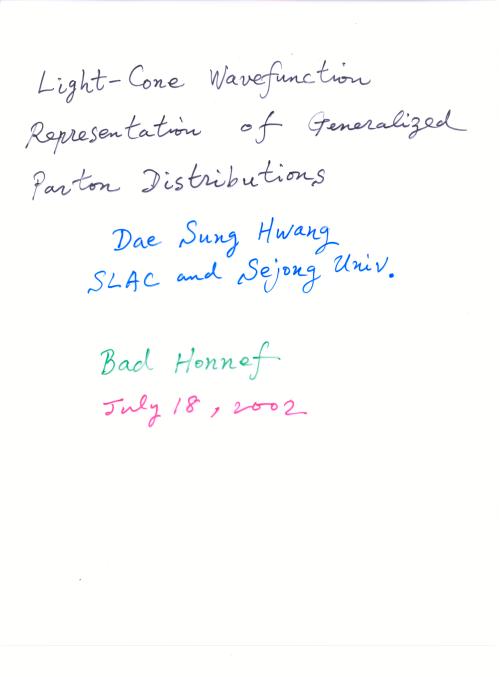 Light-Cone Wavefunction
Representation of Generalized
Parton Distributions
Dae Sung Hwang
SLAC and Sejong Univ.
Bad Honnef
July 18, 2002